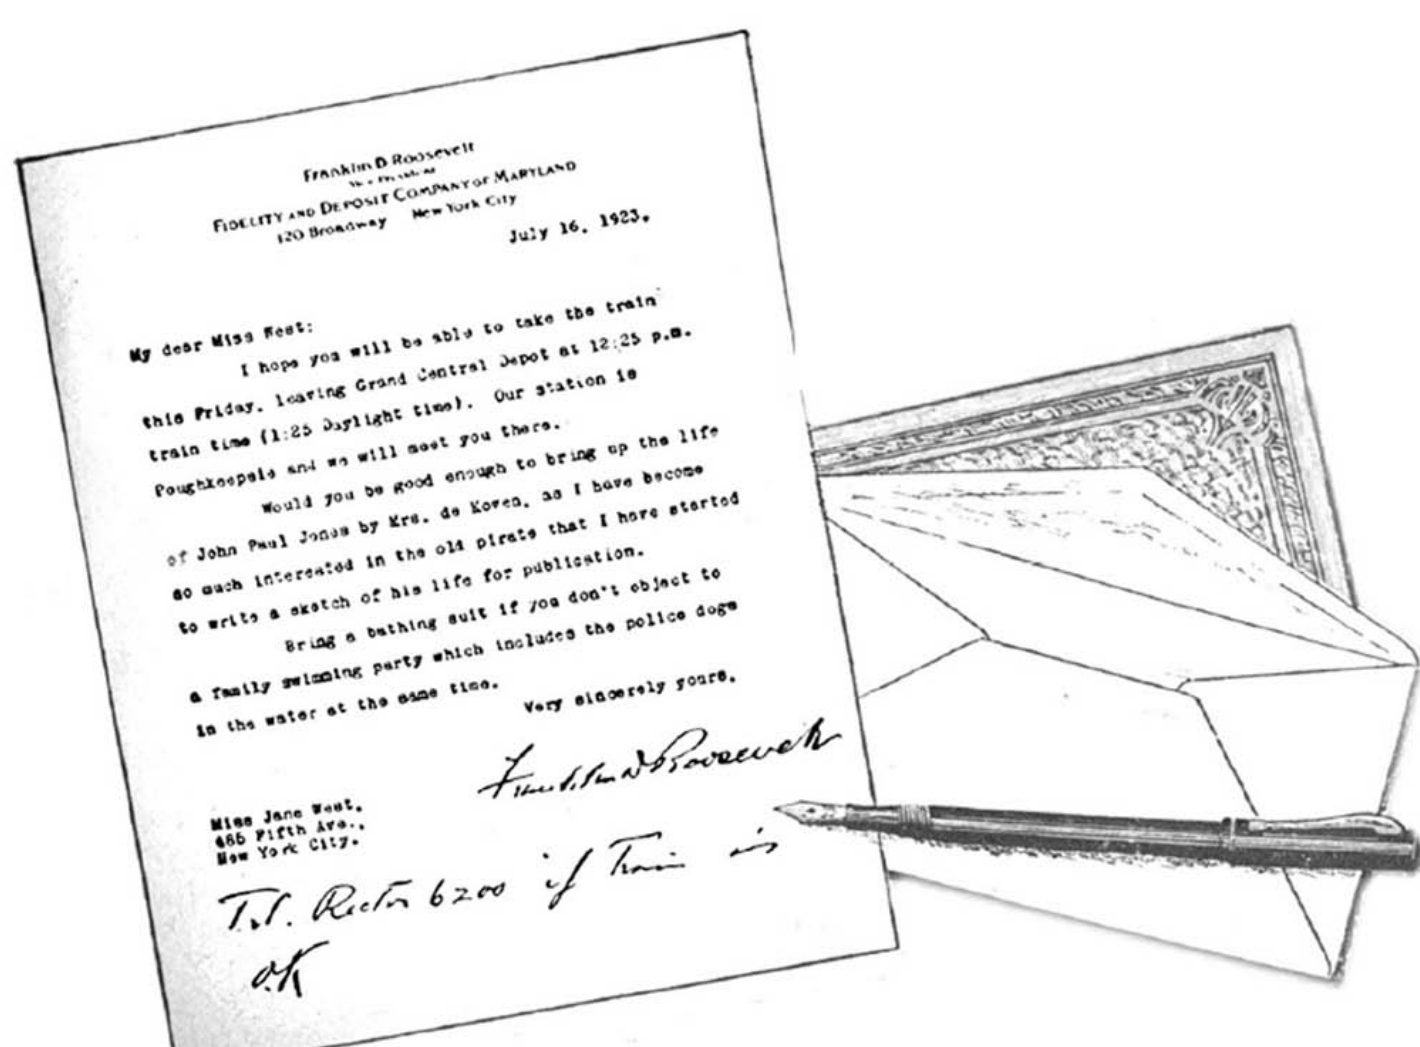 Franklin D Roosevelt
Vice President
FIDELITY AND DEPOSIT COMPANY OF MARYLAND
120 Broadway New York City
July 16, 1923.
My dear Miss West:
I hope you will be able to take the train
this Friday, leaving Grand Central Depot at 12:25 p.m.
train time (1:25 Daylight time). Our station is
Poughkeepsie and we will meet you there.
Would you be good enough to bring up the life
of John Paul Jones by Mrs. de Koven, as I have become
so much interested in the old pirate that I have started
to write a sketch of his life for publication.
Bring a bathing suit if you don't object to
a family swimming party which includes the police dogs
in the water at the same time.
Very sincerely yours,
Franklin D Roosevelt
Miss Jane West,
Fifth Ave.,
New York City.
Tel. Rector 6200 if Train is
O.K